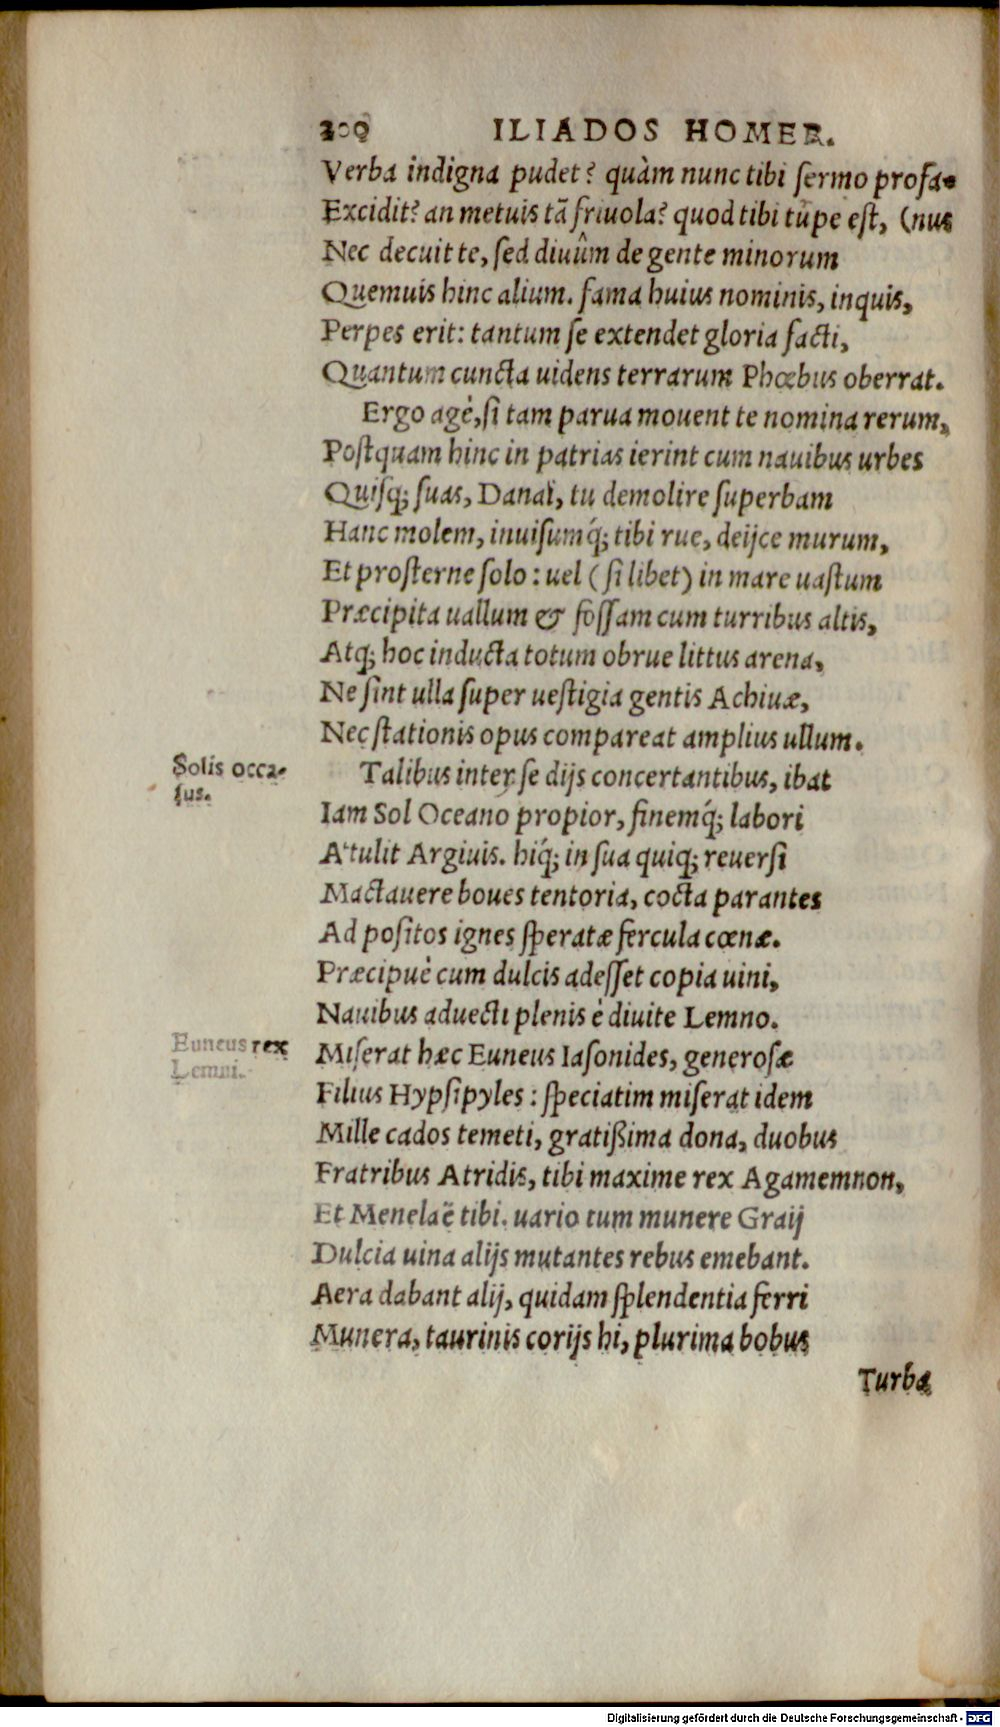 200 ILIADOS HOMER.
Verba indigna pudet? quàm nunc tibi sermo profa-
Excidit? an metuis tã friuola? quod tibi tũpe est, (nus
Nec decuit te, sed diuûm de gente minorum
Quemuis hinc alium. fama huius nominis, inquis,
Perpes erit: tantum se extendet gloria facti,
Quantum cuncta uidens terrarum Phœbus oberrat.
Ergo agè, si tam parua mouent te nomina rerum,
Postquam hinc in patrias ierint cum nauibus urbes
Quisq; suas, Danaï, tu demolire superbam
Hanc molem, inuisumq́; tibi rue, deijce murum,
Et prosterne solo: uel (si libet) in mare uastum
Præcipita uallum & fossam cum turribus altis,
Atq; hoc inducta totum obrue littus arena,
Ne sint ulla super uestigia gentis Achiuæ,
Nec stationis opus compareat amplius ullum.
Solis occa-
sus.
Talibus inter se dijs concertantibus, ibat
Iam Sol Oceano propior, finemq́; labori
Attulit Argiuis. hiq́; in sua quiq; reuersi
Mactauere boues tentoria, cocta parantes
Ad positos ignes speratæ fercula cœnæ.
Præcipuè cum dulcis adesset copia uini,
Nauibus aduecti plenis è diuite Lemno.
Euneus rex
Lemni.
Miserat hæc Euneus Iasonides, generosæ
Filius Hypsipyles: speciatim miserat idem
Mille cados temeti, gratißima dona, duobus
Fratribus Atridis, tibi maxime rex Agamemnon,
Et Menelaë tibi. uario tum munere Graij
Dulcia uina alijs mutantes rebus emebant.
Aera dabant alij, quidam splendentia ferri
Munera, taurinis corijs hi, plurima bobus
Turba
Digitalisierung gefördert durch die Deutsche Forschungsgemeinschaft - DFG